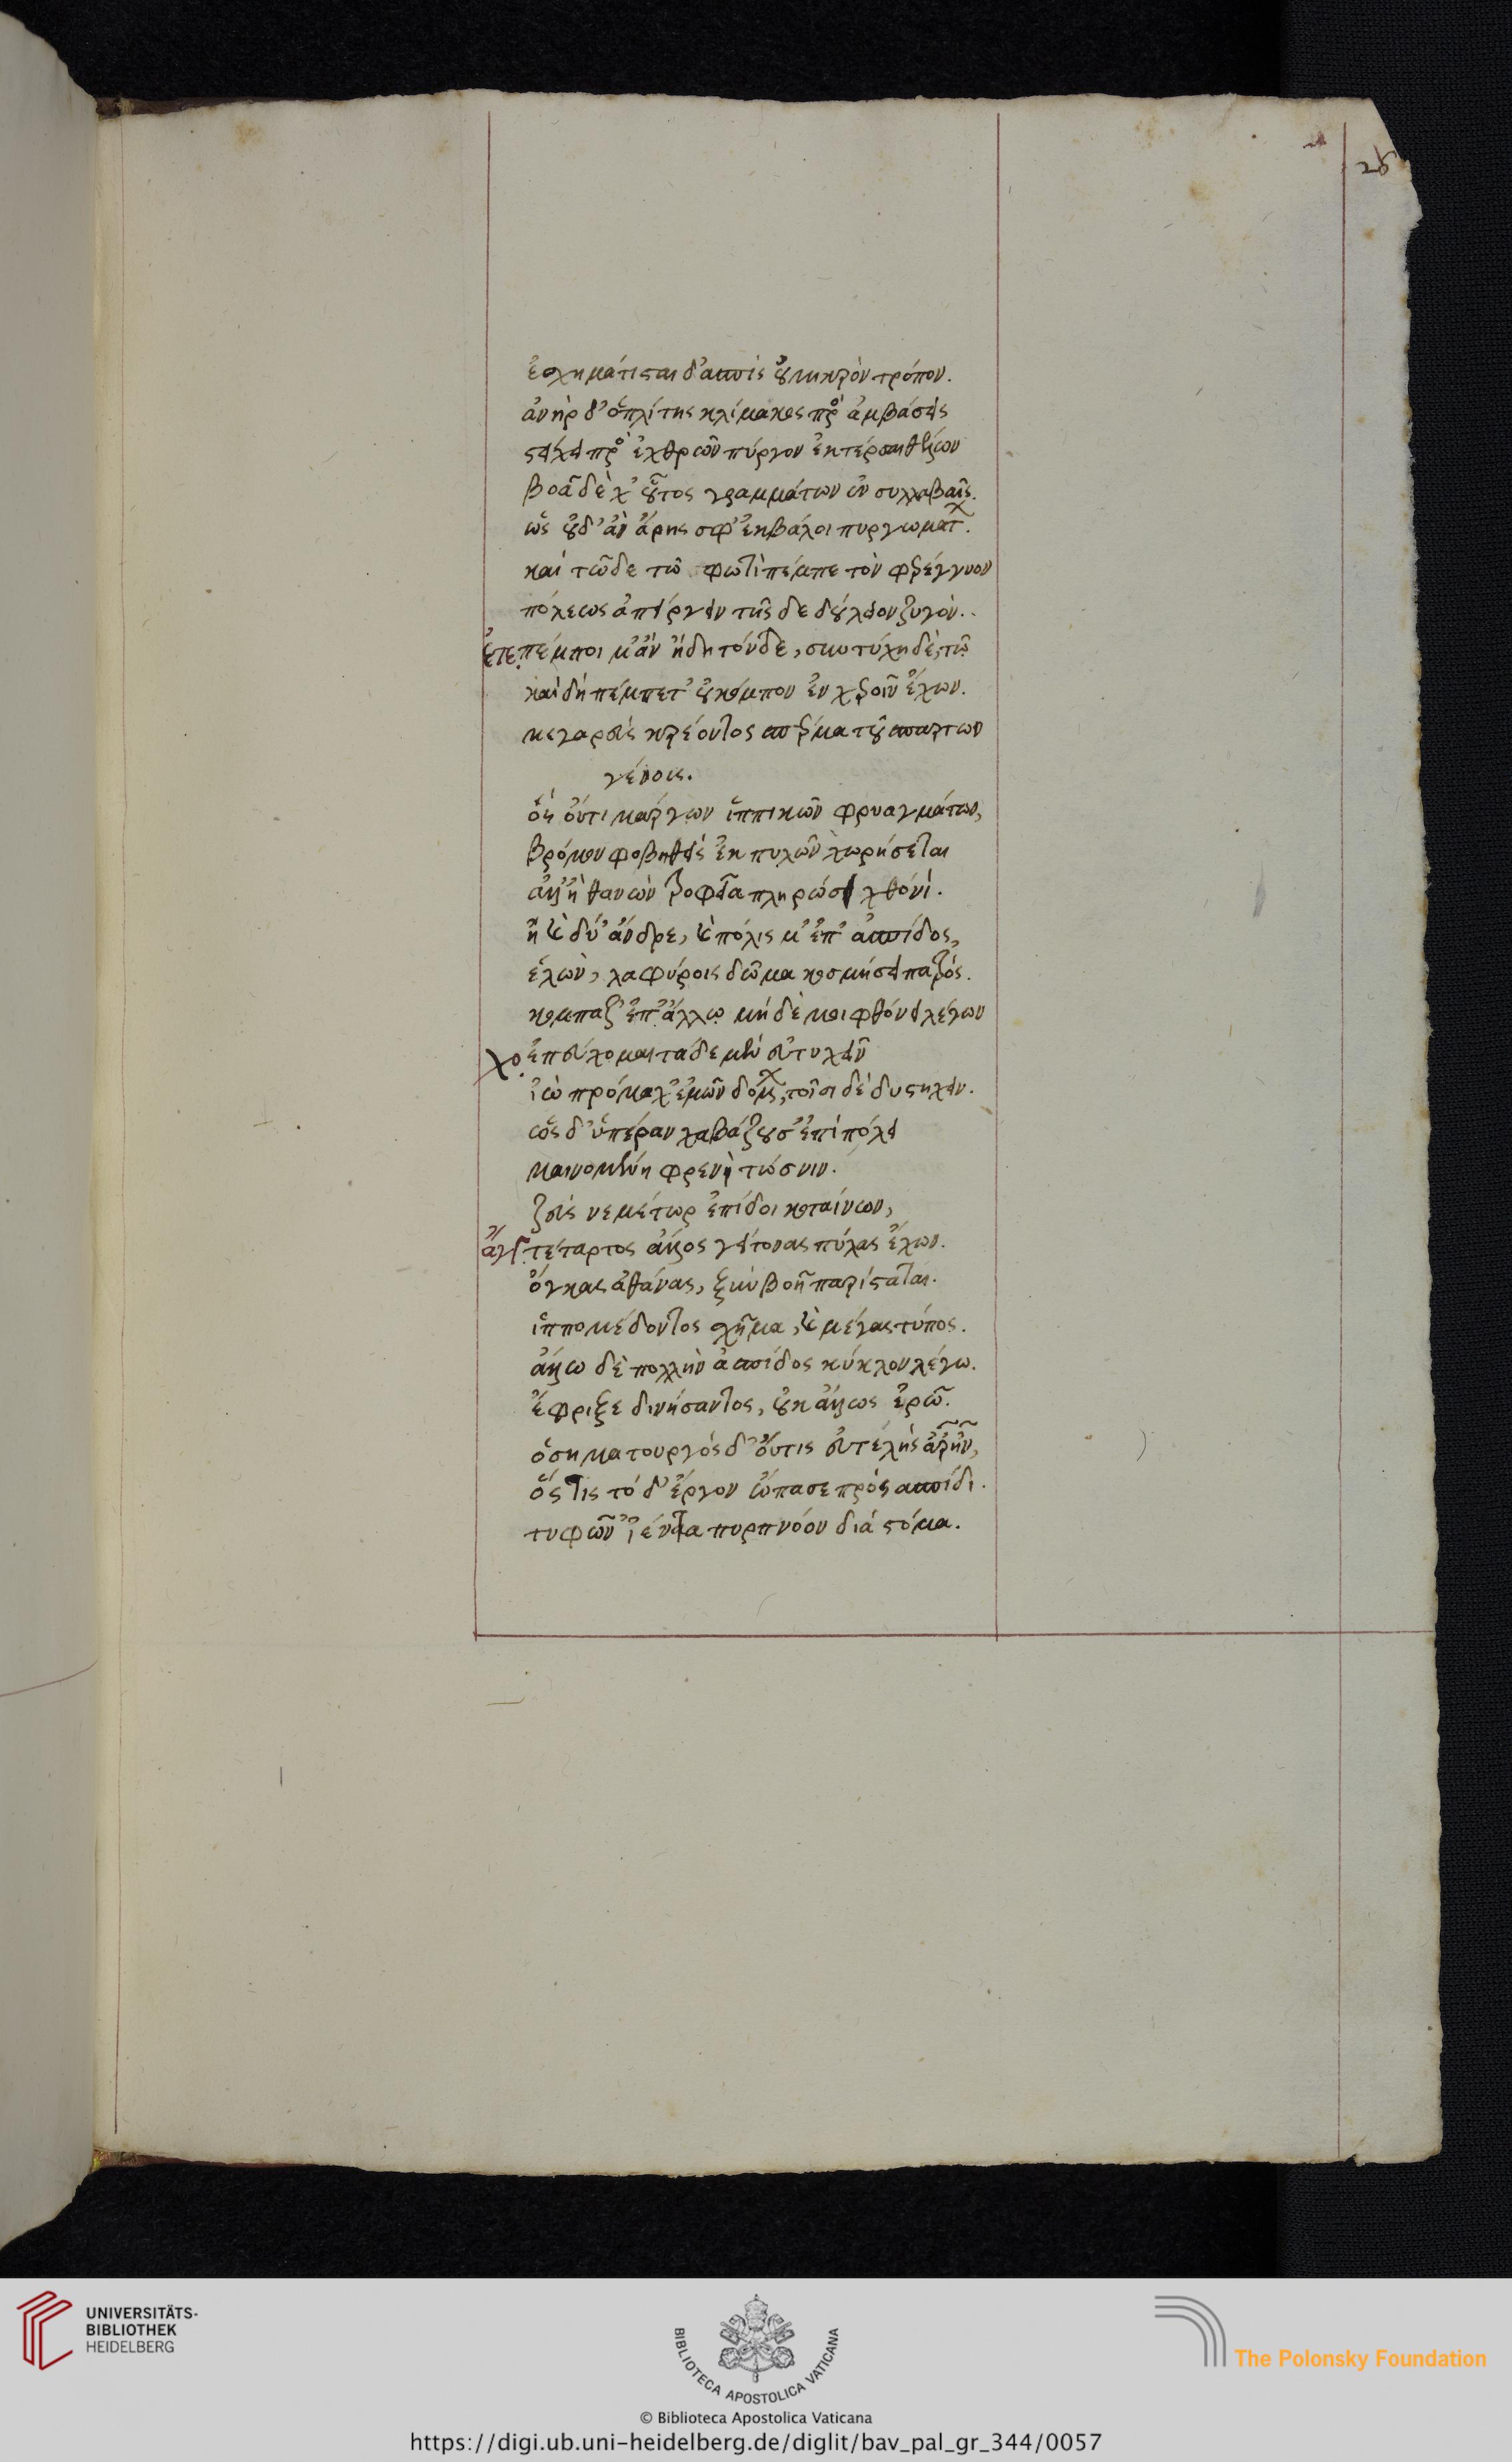 28
ἐσχημάτισται δ' ἀσπὶς οὐ μικρὸν τρόπον.
ἀνὴρ δ' ὁπλίτης κλίμακος πρὸς ἀμβάσεις
στείχει πρὸς ἐχθρῶν πύργον ἐκπέρσαι θέλων
βοᾷ δὲ χ' οὗτος γραμμάτων ἐν συλλαβαῖς.
ὡς οὐδ' ἂν ἄρης σφ' ἐκβάλοι πυργωμάτων.
καὶ τῶδε τῶ φωτὶ πέμπε τὸν φερέγγυον
πόλεως ἀπείργειν τῆς δε δούλειον ζυγὸν..
ἐτε. πέμποι μ' ἂν ἤδη τόνδε, σὺν τύχη δέ, τῶ
καὶ δὴ πέμπετ' οὐ κόμπον ἐν χεροῖν ἔχων.
μεγαρεὺς κρέοντος σπέρμα τοῦ σπαρτων
γένους.
ὃς οὔτι μαργων ἱππικῶν φρυαγμάτων,
βρόμον φοβηθεὶς ἐκ πυλῶν χωρήσεται
ἀλλ' ἢ θανὼν τροφεῖα πληρώσει χθόνί.
ἢ καὶ δύ' ἄνδρε, καὶ πόλισμ' ἐπ' ἀσπίδος,
ἑλὼν, λαφύροις δῶμα κοσμήσει πατρός.
κόμπαζ' ἐπ' ἄλλῳ μὴ δέ μοι φθόνει λέγων
χο. ἐπεύχομαι ταδε μὲν εὐτυχεῖν
ἰὼ πρόμαχ' ἐμῶν δόμων, τοῖσι δὲ δυστυχεῖν.
ὡς δ' ὑπέραυχα βάζουσ' ἐπὶ πόλει
μαινομένη φρενὶ τώσνιν.
ζεὺς νεμέτωρ ἐπίδοι κοταίνων,
ἄγγ. τέταρτος ἄλλος γείτονας πύλας ἔχων.
ὄγκας ἀθάνας, ξὺν βοῇ παρίσταται.
ἱππομέδοντος σχῆμα, καὶ μέγας τύπος.
ἅλω δὲ πολλὴν ἀσπίδος κύκλον λέγω.
ἔφριξε δινήσαντος, οὐκ ἄλλως ἐρῶ.
ὁ σηματουργὸς δ' οὔτις εὐτελὴς ἄρ' ἦν,
ὅστις τό δ' ἔργον ὤπασε πρὸς ἀσπίδι.
τυφῶν' ἱέντα πυρπνόον διὰ στόμα.
UNIVERSITÄTS-
BIBLIOTHEK
HEIDELBERG
BIBLIOTECA APOSTOLICA VATICANA
© Biblioteca Apostolica Vaticana
The Polonsky Foundation
https://digi.ub.uni-heidelberg.de/diglit/bav_pal_gr_344/0057